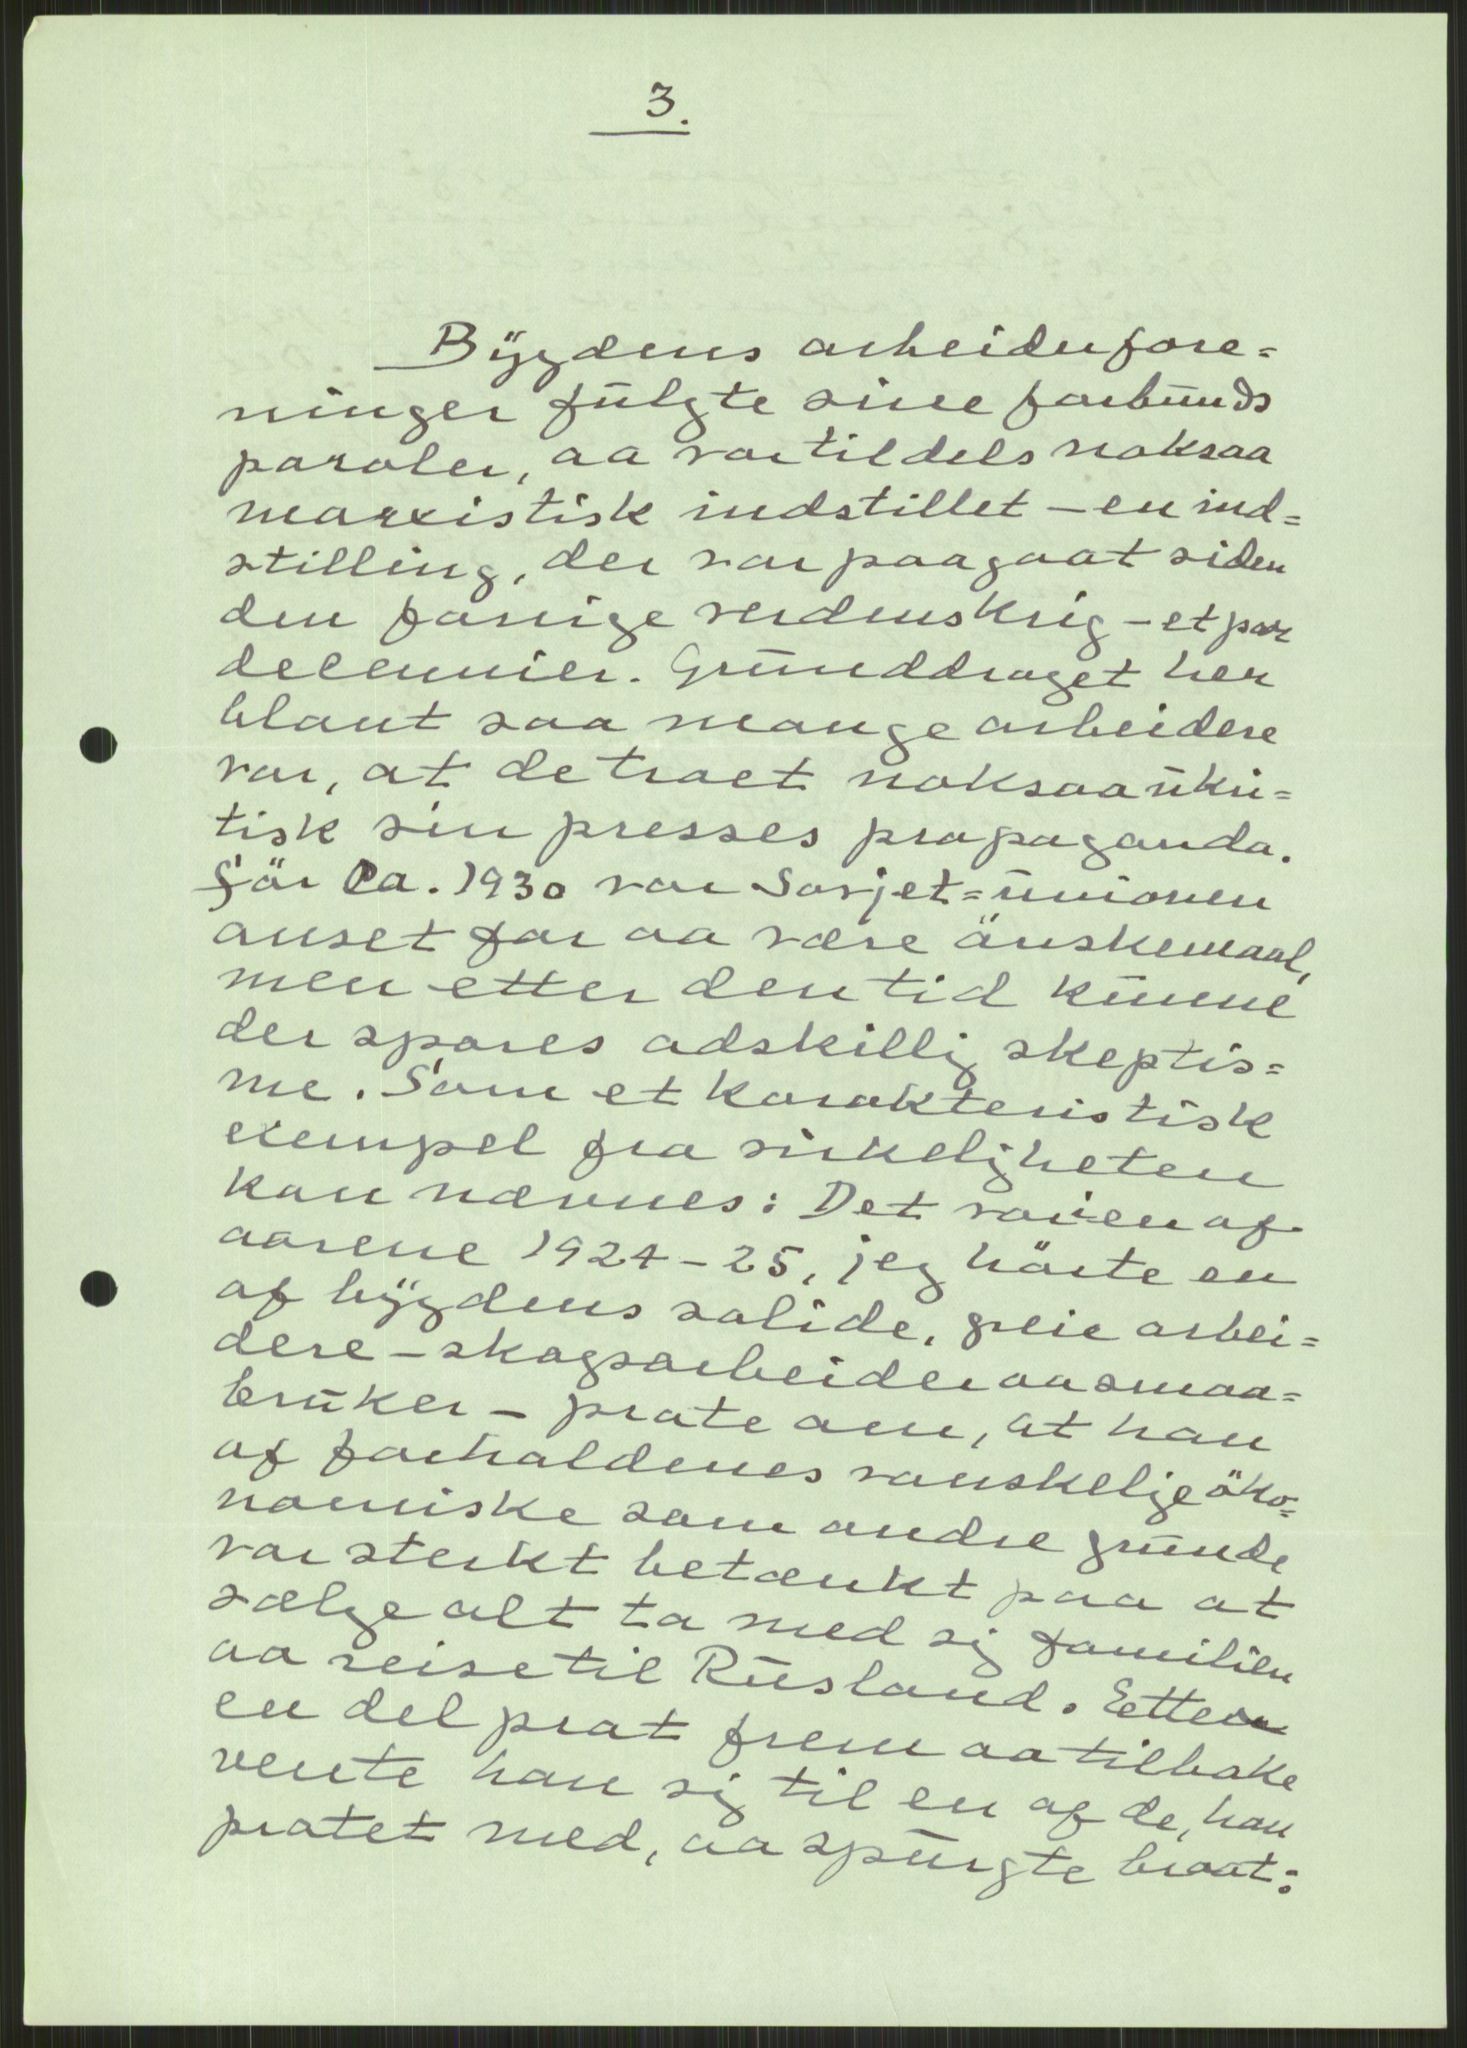 3.
Bygdens arbeiderfore=
ninger fulgte sine forbunds
paroler, aa var tildels noksaa
marxistisk indstillet - en ind=
stilling, der var paagaat siden
den forrige verdenskrig - et par
decennier. Grunddraget her
blant saa mange arbeidere
var, at de traet noksaa ukri=
tisk sin presses propaganda.
Før Ca. 1930 var Sovjet=unionen
anset for aa være ønskemaal,
men etter den tid kunne
der spores adskillig skeptis=
me. Som et karakteristisk
exempel fra virkeligheten
kan nævnes: Det var en af
aarene 1924-25, jeg hørte en
af bygdens solide, greie arbei=
dere - skogsarbeider aa smaa=
bruker - prate om, at han
af forholdenes vanskelige øko=
nomiske som andre grunde
var sterkt betænkt paa at
sælge alt ta med sig familien
aa reise til Rusland. Etter
en del prat frem aa tilbake
vente han sig til en af de, han
pratet med, aa spurgte braat: